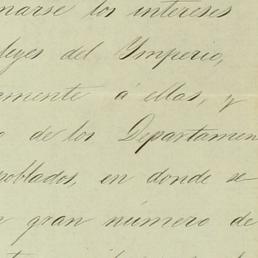 narse los intereses
leyes del Imperio,
amente á ellas, y
o de los Departamen
poblados, en donde se
n gran número de